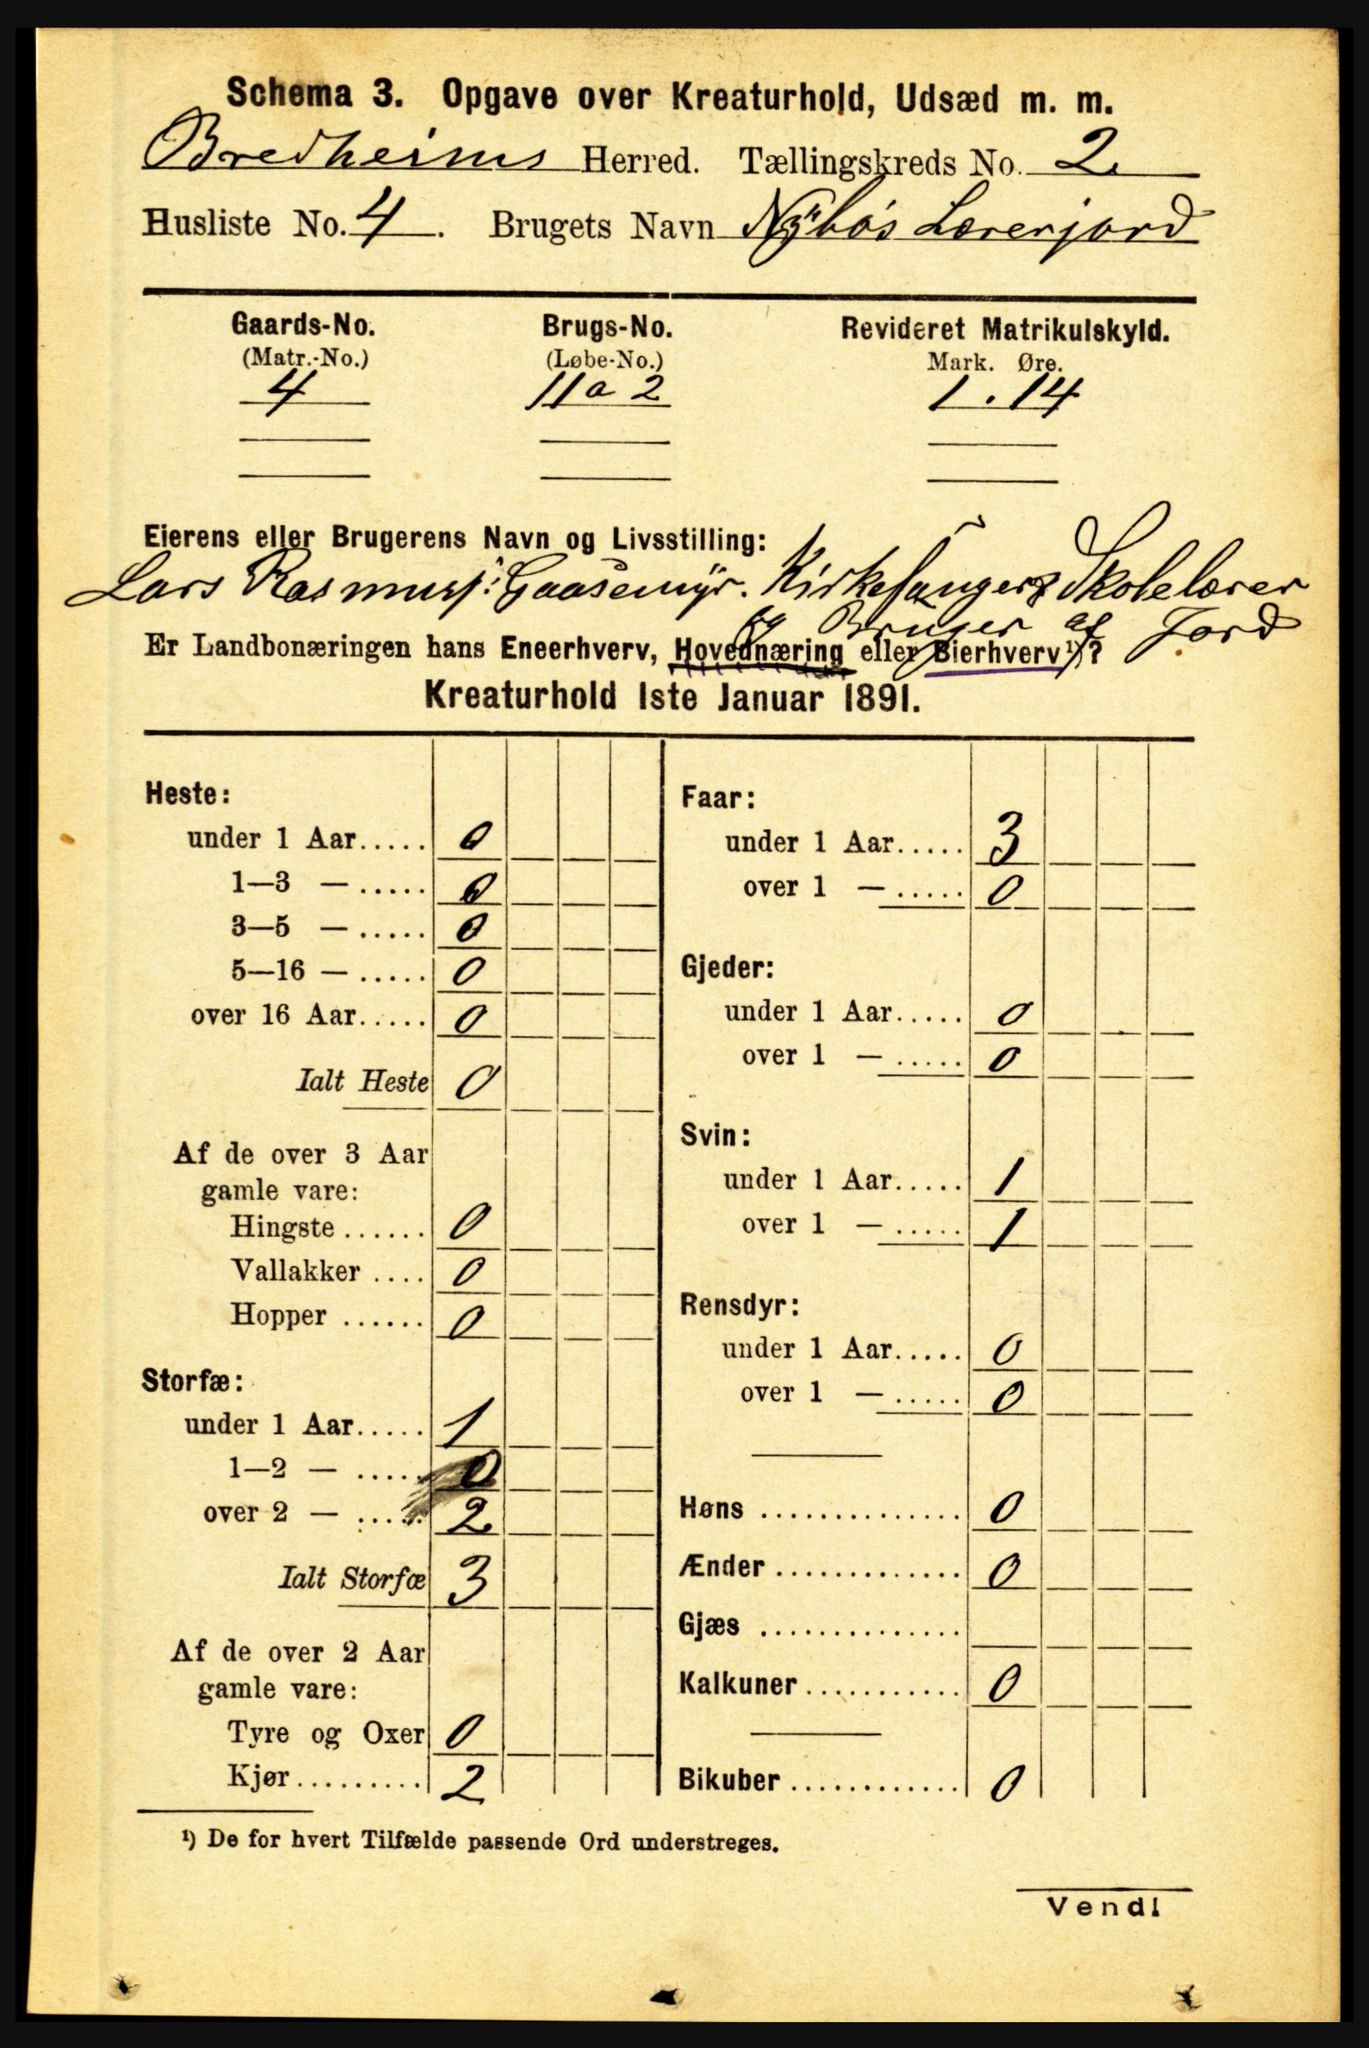 Schema 3. Opgave over Kreaturhold, Udsæd m. m.
Bredheims Herred. Tællingskreds No. 2.
Husliste No. 4. Brugets Navn Nÿbös Lærerjord
Gaards-No. Brugs-No. Revideret Matrikulskyld.
(Matr.-No.) (Løbe-No.) Mark. Øre.
4 11 a 2 1 . 14
Eierens eller Brugerens Navn og Livsstilling:
Lars Rasmuss: Gaasemyr. Kirkesanger & Skolelærer
og Bruger af Jord
Er Landbonæringen hans Eneerhverv, Hovednæring eller Bierhverv¹)?
Kreaturhold 1ste Januar 1891.
Heste:
under 1 Aar..... 0
1—3 — ..... 0
3—5 — ..... 0
5—16 — ..... 0
over 16 Aar..... 0
Ialt Heste 0
Af de over 3 Aar
gamle vare:
Hingste ...... 0
Vallakker .... 0
Hopper ...... 0
Storfæ:
under 1 Aar..... 1
1—2 — ..... 0
over 2 — ..... 2
Ialt Storfæ 3
Af de over 2 Aar
gamle vare:
Tyre og Oxer 0
Kjør......... 2
Faar:
under 1 Aar..... 3
over 1 — ..... 0
Gjeder:
under 1 Aar..... 0
over 1 — ..... 0
Svin:
under 1 Aar..... 1
over 1 — ..... 1
Rensdyr:
under 1 Aar..... 0
over 1 — ..... 0
Høns .............. 0
Ænder ............. 0
Gjæs ..............
Kalkuner ........... 0
Bikuber ............ 0
¹) De for hvert Tilfælde passende Ord understreges.
Vend!